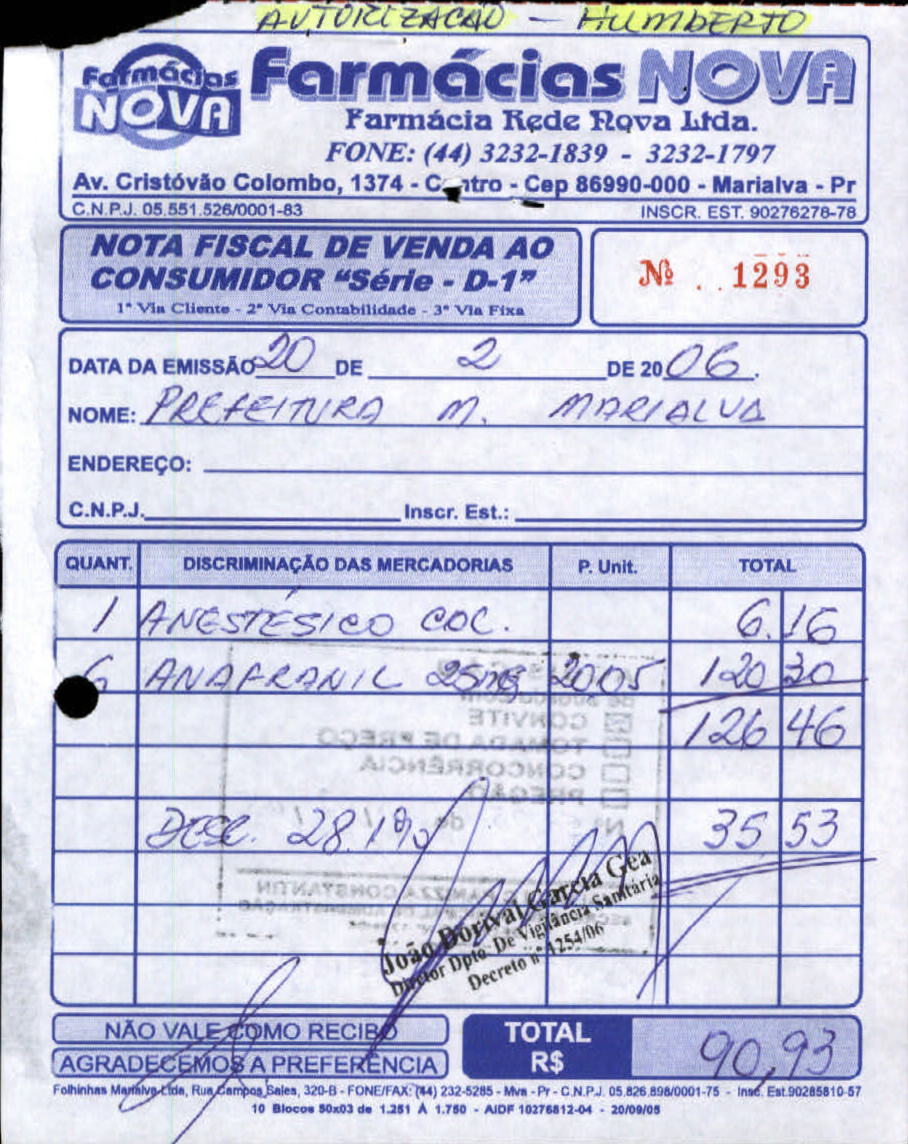 AUTORIZACAO - HUMBERTO
Farmácias NOVA
Farmácias NOVA
Farmácia Rede Nova Ltda.
FONE: (44) 3232-1839 - 3232-1797
Av. Cristóvão Colombo, 1374 - Centro - Cep 86990-000 - Marialva - Pr
C.N.P.J. 05.551.526/0001-83 INSCR. EST. 90276278-78
NOTA FISCAL DE VENDA AO
CONSUMIDOR "Série - D-1"
1ª Via Cliente - 2ª Via Contabilidade - 3ª Via Fixa
Nº 1293
DATA DA EMISSÃO 20 DE 2 DE 2006.
NOME: PREFEITURA M. MARIALVA
ENDEREÇO:
C.N.P.J. Inscr. Est.:
QUANT. DISCRIMINAÇÃO DAS MERCADORIAS P. Unit. TOTAL
1 ANESTÉSICO COL. 6.16
6 ANAFRANIL 25mg 20.05 120 30
126 46
CONVITE
TOMADA DE PREÇO
CONCORRÊNCIA
PREGÃO
DESC. 28.1% 35 53
João Dorival Garcia Gea
Diretor Dpto. De Vigilância Sanitária
Decreto nº 1254/06
NÃO VALE COMO RECIBO
AGRADECEMOS A PREFERÊNCIA
TOTAL R$ 90,93
Folhinhas Marialva Ltda, Rua Campos Sales, 320-B - FONE/FAX: (44) 232-5285 - Mva - Pr - C.N.P.J. 05.826.898/0001-75 - Insc. Est.90285810-57
10 Blocos 50x03 de 1.251 À 1.750 - AIDF 10276812-04 - 20/09/05